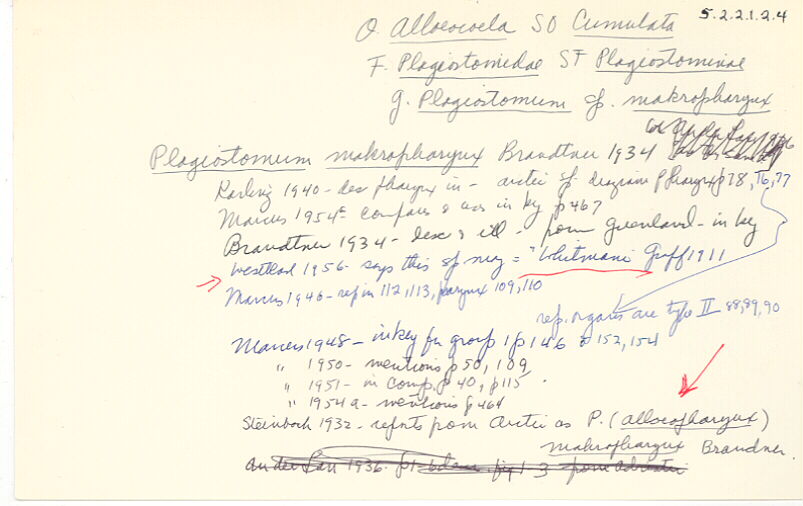 O. Alloeocoela SO Cumulata 5.2.2.1.2.4
F. Plagiostomidae SF Plagiostominae
g. Plagiostomum sp. makropharynx
Plagiostomum makropharynx Brandtner 1934
Karling 1940 - des pharynx in - arctic sp. diagram pharynx p 78, 76, 77
Marcus 1954c compares & was in key p 467
Brandtner 1934 - desc & ill - from Greenland - in key
Westblad 1956 - says this sp may = "Whitmani Graff 1911
Marcus 1946 - ref in 112, 113, parynx 109, 110
rep. organs are type II 88, 89, 90
Marcus 1948 - in key for group 1 p 146 & 152, 154
" 1950 - mentions p 50, 109
" 1951 - in comp. p 40, p 115
" 1954a - mentions p 464
Steinbock 1932 - refers from Arctic as P. (allocopharynx)
makropharynx Brandner
An der Lan 1936 fig 1 3 from